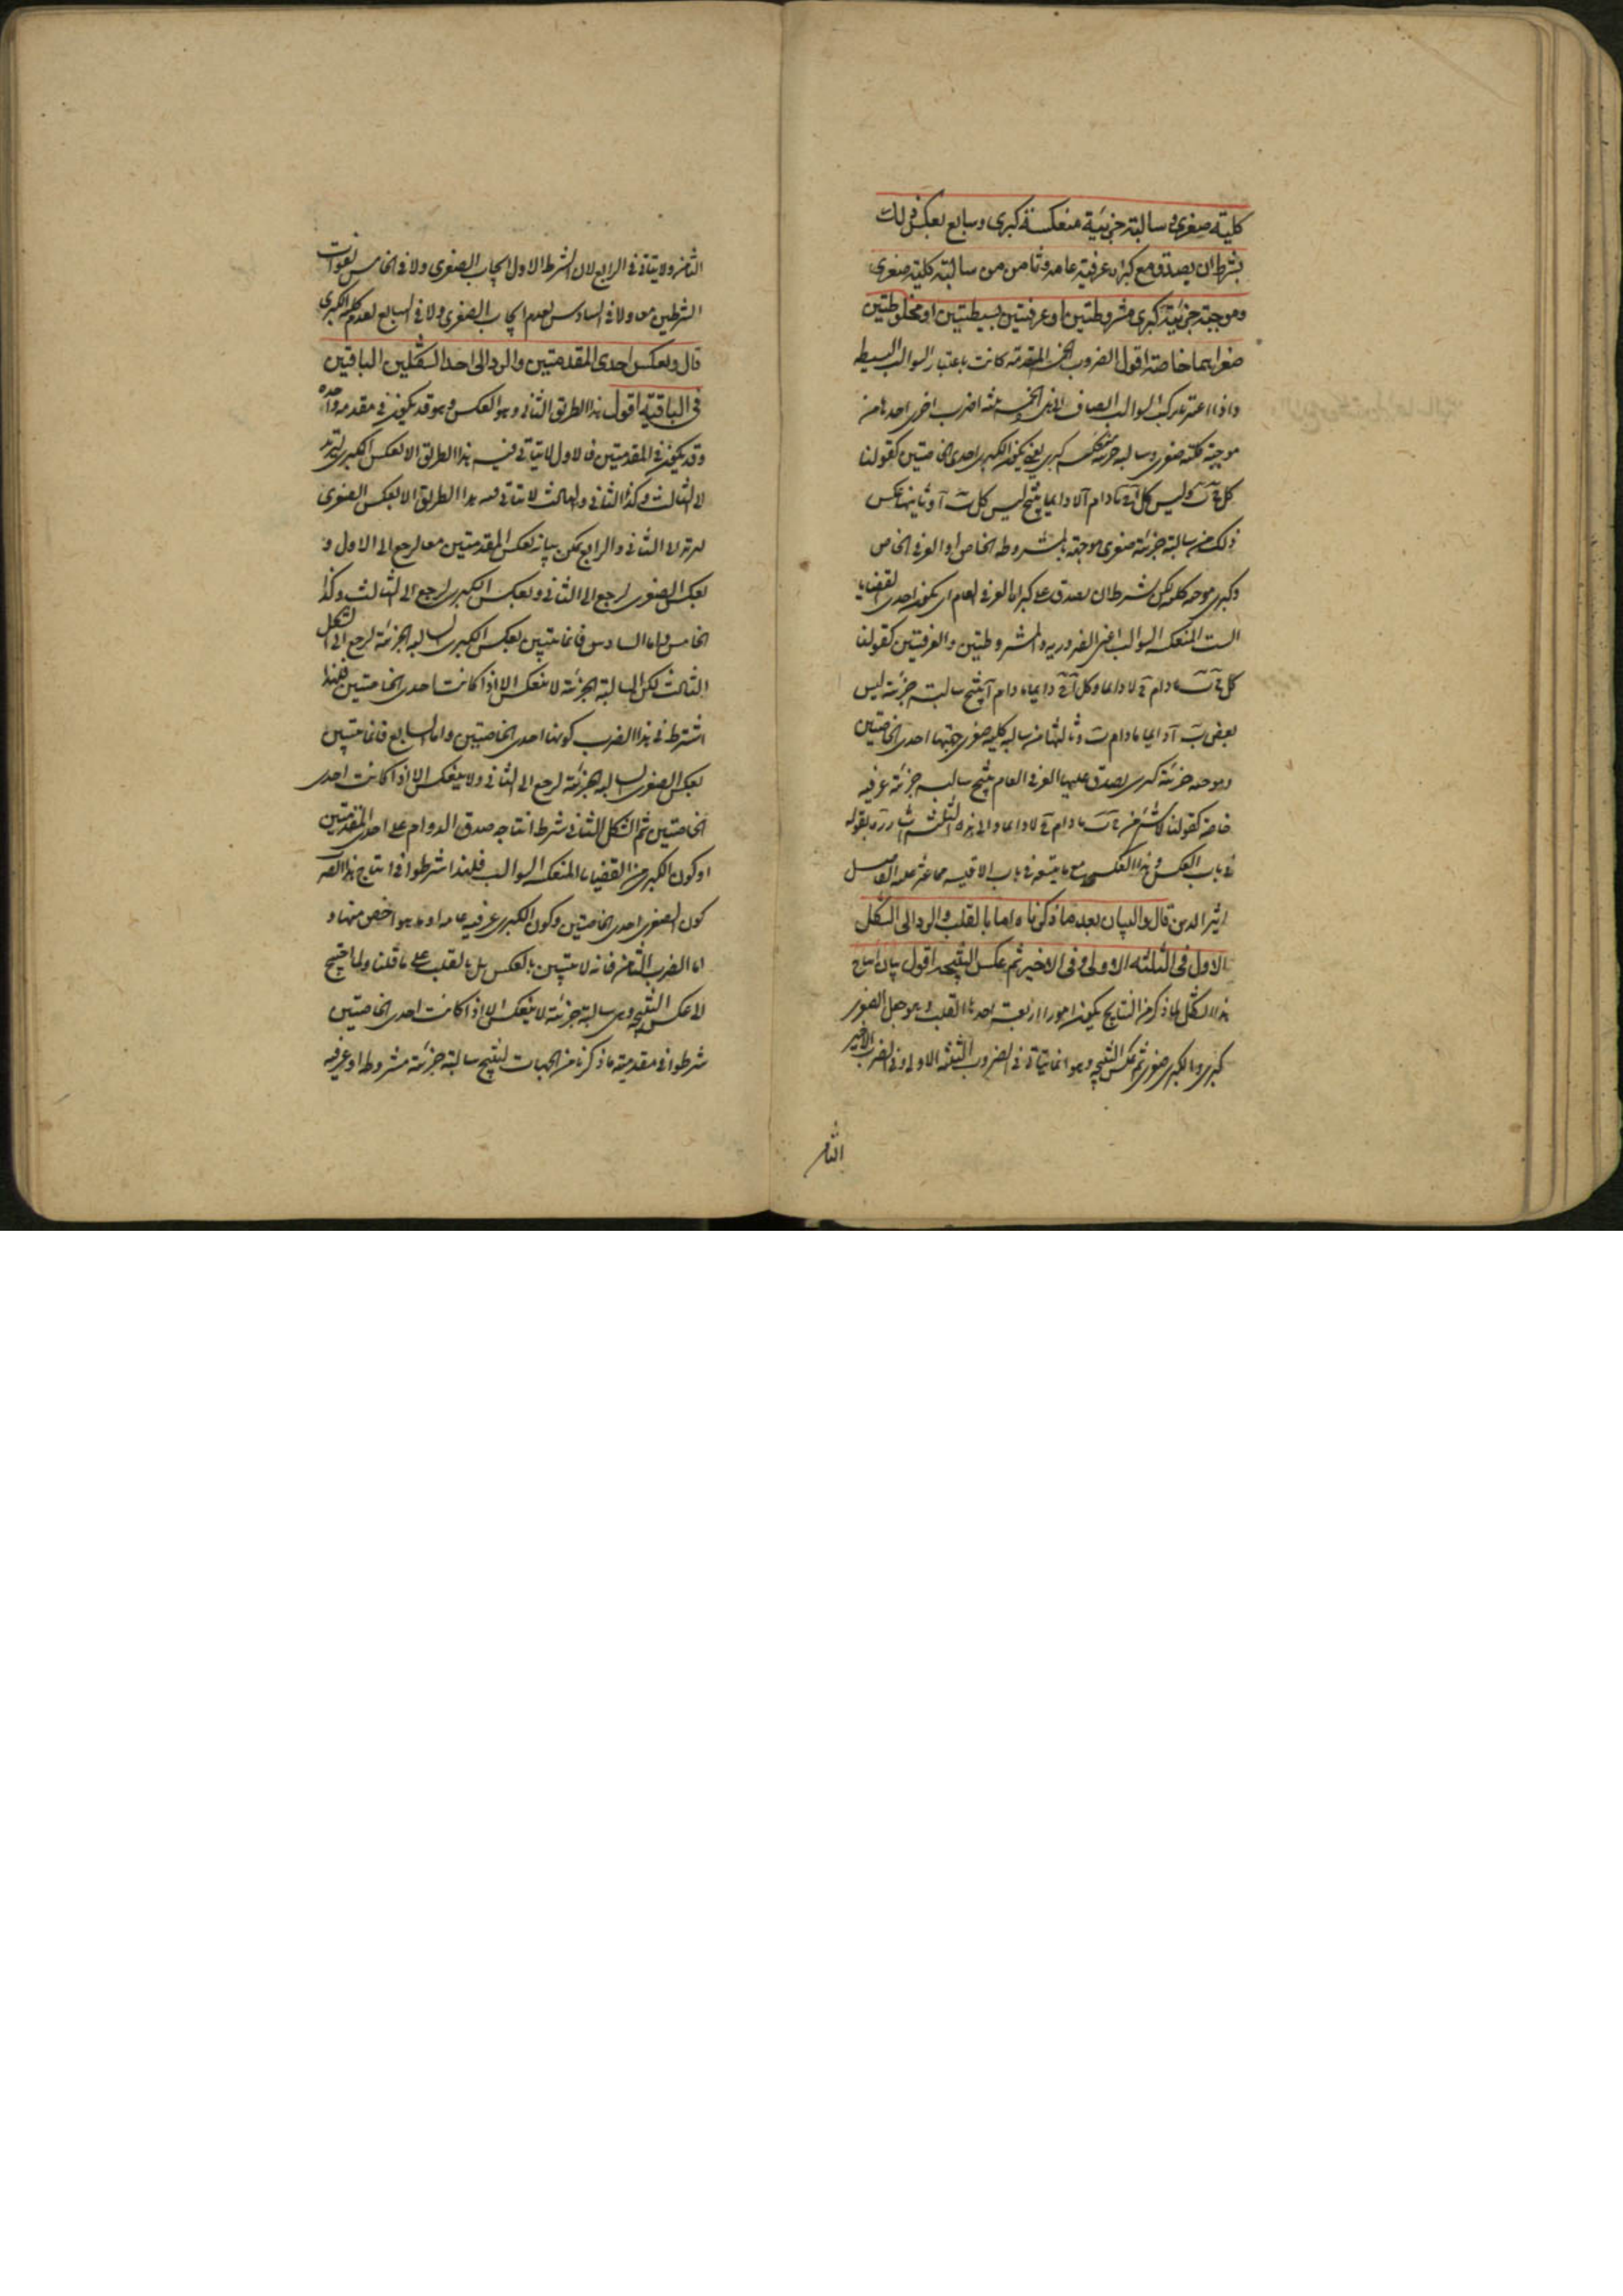 كلية صغرى و سالبة جزئية منعكسة كبرى وسابع بعكس ذلك
بشرط ان يصدق مع كبراه عرفية عامة وثامن من سالبة كلية صغرى
وموجبة جزئية كبرى مشروطتين او عرفيتين بسيطتين او مختلطتين
صغراهما خاصة اقول الضروب الخمس المتقدمة كانت باعتبار السوالب البسيطة
واذا اعتبر تركب السوالب انضاف الى الخمسة ثلثة اضرب اخرى احدها من
موجبة كلية صغرى وسالبة جزئية منعكسة كبرى يعنى يكون الكبرى احدى الخاصتين كقولنا
كل ج ب وليس كل آ ج مادام آ لا دايما ينتج ليس كل ب آ وثانيها عكس
ذلك من سالبة جزئية صغرى موجهة بالمشروطة الخاص او العرفى الخاص
وكبرى موجبة كلية لكن بشرط ان يصدق على كبراه العرفى العام اى يكون احدى القضايا
الست المنعكسة السوالب اعنى الضرورية والمشروطتين والعرفيتين كقولنا
كل ج ب مادام ج لا دايما وكل آ ج دايما مادام آ ينتج سالبة جزئية ليس
بعض ب آ دايما مادام ب وثالثها من سالبة كلية صغرى جهتها احدى الخاصتين
وموجبة جزئية كبرى يصدق عليها العرفى العام ينتج سالبة جزئية عرفية
خاصة كقولنا لا شئ من ج ب مادام ج لا دايما والى هذه الثلثة اشار بقوله
فى باب العكس وهذا العكس مع ما يتبعه فى باب الاقيسة مما عثر عليه الفاضل
اثير الدين قال والبيان بعد ما ذكرناه اما بالقلب والرد الى الشكل
الاول فى الثلثة الاولى وفى الاخير ثم عكس النتيجة اقول بيان انتاج
هذا الشكل لما ذكر من النتايج يكون امورا اربعة احدها القلب وهو جعل الصغرى
كبرى والكبرى صغرى ثم عكس النتيجة وهو انما يتاتى فى الضروب الثلثة الاولى وفى الضرب الاخير
الثامن
الثامن ولا يتاتى فى الرابع لان الشرط الاول ايجاب الصغرى ولا فى الخامس لفوات
الشرطين معا ولا فى السادس لعدم ايجاب الصغرى ولا فى السابع لعدم كلية الكبرى
قال وبعكس احدى المقدمتين والرد الى احد الشكلين الباقيين
فى الباقية اقول هذا الطريق الثانى وهو العكس وهو قد يكون فى مقدمة واحدة
وقد يكون فى المقدمتين فالاول لا يتاتى فيه هذا الطريق الا بعكس الكبرى ليرتد
الى الثالث وكذا الثانى والثالث لا يتاتى فيه هذا الطريق الا بعكس الصغرى
ليرتد الى الثانى والرابع يمكن بيانه بعكس المقدمتين معا ليرجع الى الاول و
بعكس الصغرى ليرجع الى الثانى وبعكس الكبرى ليرجع الى الثالث وكذا
الخامس واما السادس فانما يتبين بعكس الكبرى السالبة الجزئية ليرجع الى الشكل
الثالث لكن السالبة الجزئية لا ينعكس الا اذا كانت احدى الخاصتين فلهذا
اشترط فى هذا الضرب كونها احدى الخاصتين واما السابع فانما يتبين
بعكس الصغرى السالبة الجزئية ليرجع الى الثانى ولا ينعكس الا اذا كانت احدى
الخاصتين ثم الشكل الثانى شرط انتاجه صدق الدوام على احدى المقدمتين
او كون الكبرى من القضايا المنعكسة السوالب فلهذا اشترطوا فى انتاج هذا الضرب
كون الصغرى احدى الخاصتين وكون الكبرى عرفية عامة او ما هو اخص منها و
اما الضرب الثامن فانه لا يتبين بالعكس بل بالقلب على ما قلنا ولما احتيج
الى عكس النتيجة وهى سالبة جزئية لا ينعكس الا اذا كانت احدى الخاصتين
شرطوا فى مقدمتيه ما ذكرنا من الجهات لينتج سالبة جزئية مشروطة او عرفية